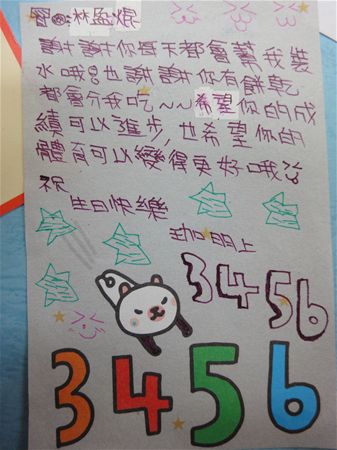 林孟焜
謝謝你每天都會幫我裝
水哦!也謝謝你有餅乾
都會分我吃~~希望你的成
績可以進步,也希望你的
體育可以變得更好哦
祝
生日快樂
上
3456
3456